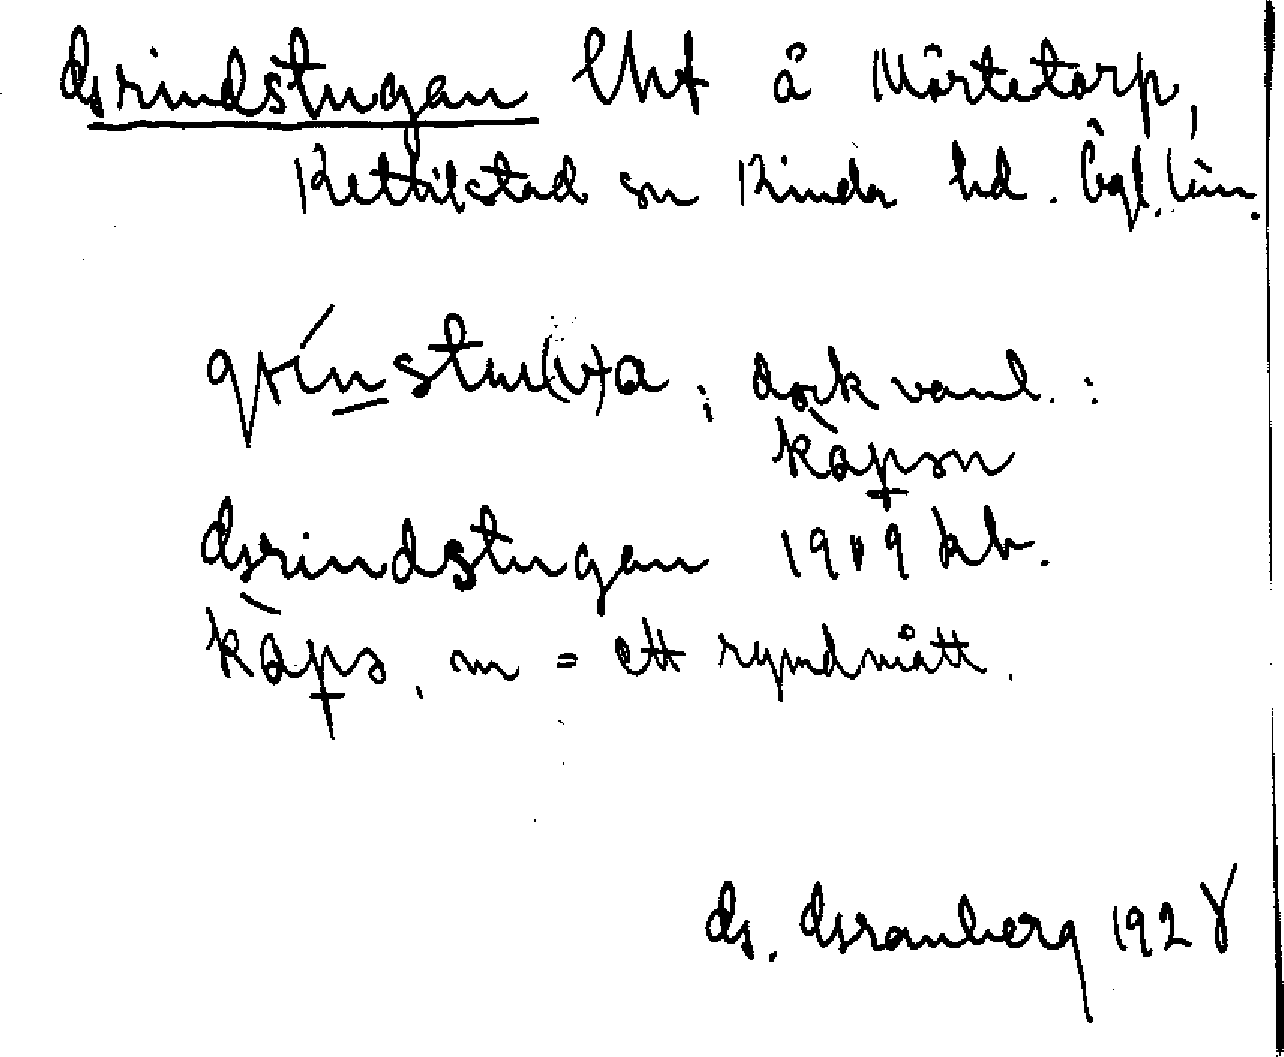 Grindstugan lht å Mårtetorp,
Kettilstad sn Kinda hd. Ögl. län.
grínstu(v)a; dock vanl.:
kàpsn
Grindstugan 1909 kb.
kàps, m = ett rymdmått.
G. Granberg 1928